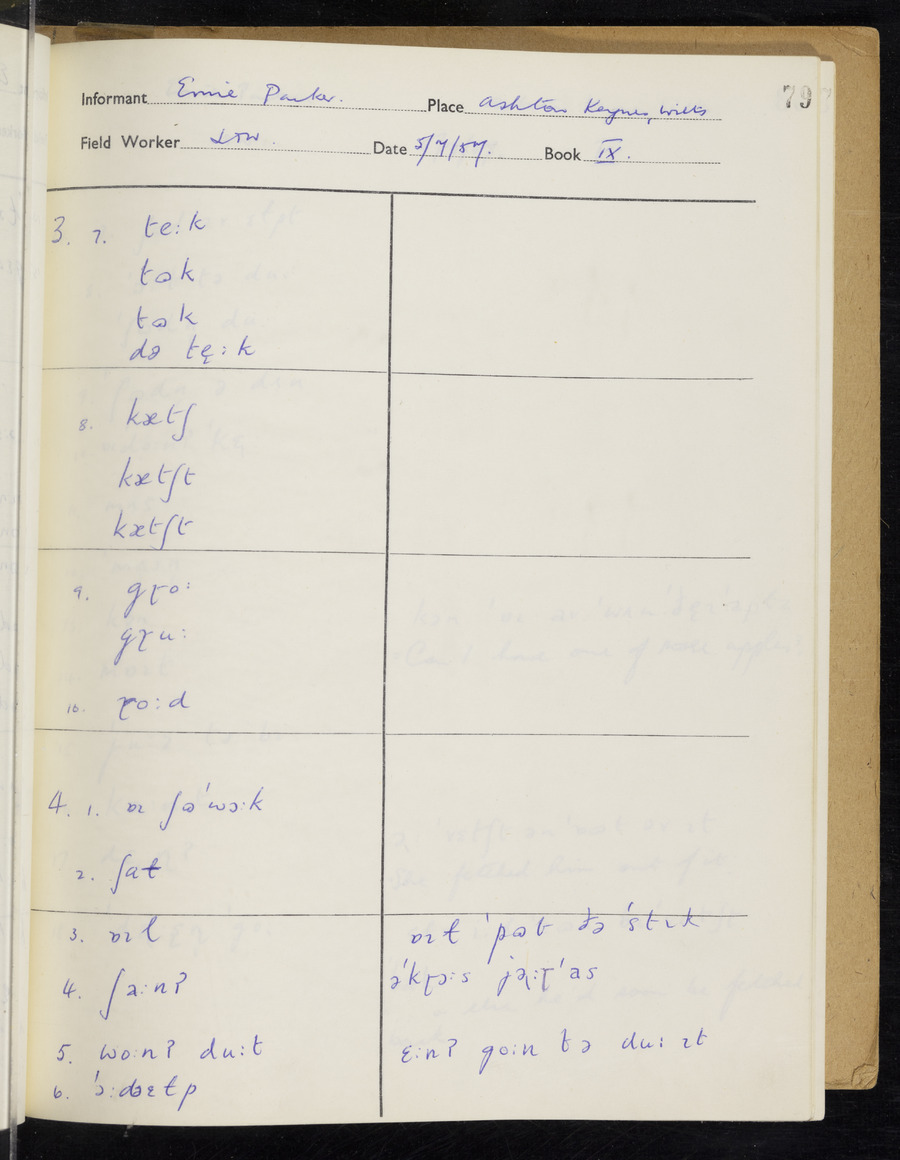 79
Informant Ernie Parker. Place Ashton Keynes, Wilts
Field Worker Date 5/7/57. Book IX.
3. 7. te:k
tɷk
tɷk
də tę:k
8. kætʃ
kætʃt
kætʃt
9. gɽo:
gɽu:
10. ɽo:d
4. 1. ɒɪ ʃə'wɔ:k
2. ʃaɫ
3. ɒɪl ɒɪɫ 'pɷt ðə 'stɪk
4. ʃa:nʔ ə'kɽɔ:s jəɽ:'as
5. wo:nʔ du:t ɛ:nʔ go:n tə du: ɪt
6.